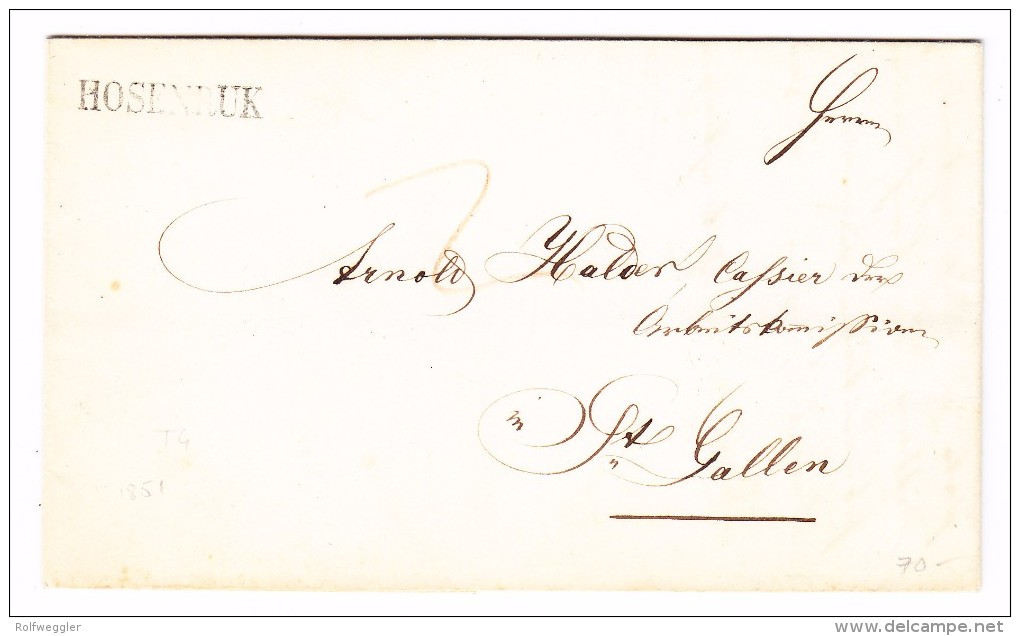 HOSENRUK
Herrn
Arnold Halder, Cassier der
Arbeitskommission
in St Gallen
TG
1851
70-
Rolfweggler
www.delcampe.net